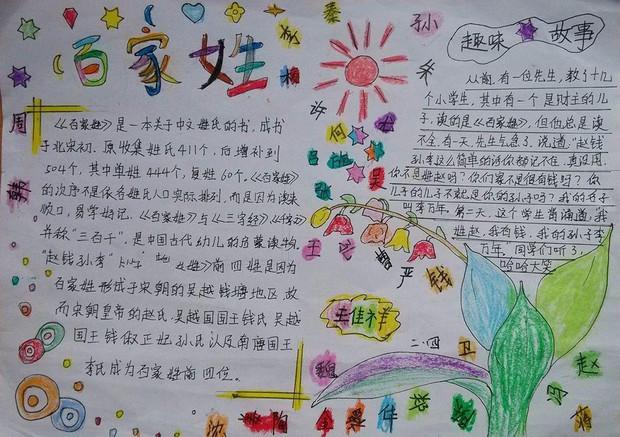 百家姓
《百家姓》是一本关于中文姓氏的书,成书
于北宋初,原收集姓氏411个,后增补到
504个,其中单姓444个,复姓60个。《百家姓》
的次序不是依各姓氏人口实际排列,而是因为读来
顺口,易学好记。《百家姓》与《三字经》《千字文》
并称"三百千",是中国古代幼儿的启蒙读物。
"赵钱孙李" 姓》前四姓是因为
百家姓形成于宋朝的吴越钱塘地区,故
而宋朝皇帝的赵氏、吴越国国王钱氏、吴越
国王钱俶正妃孙氏以及南唐国王
李氏成为百家姓前四位。
趣味故事
从前,有一位先生,教了十几
个小学生,其中有一个是财主的儿
子,读的是《百家姓》,但他总是读
不全。有一天,先生急了,说道:"赵钱
孙李这么简单的诗你都记不住,真没用,
你不是姓赵吗?你们家不是很有钱吗?你
儿子的儿子不就是你的孙子吗?我的名子
叫李万年。第二天,这个学生背诵道:我
姓赵,我有钱,我的孙子李
万年。同学们听了,
哈哈大笑
周
韩
杨
秦
孙
朱
许
何
吕
吴
王
严
钱
王佳祥
二·四
卫
赵
魏
沈
陶
金